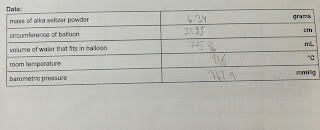 Data:
mass of alka seltzer powder grams
circumference of balloon 31.95 cm
volume of water that fits in balloon mL
room temperature °C
barometric pressure mmHg